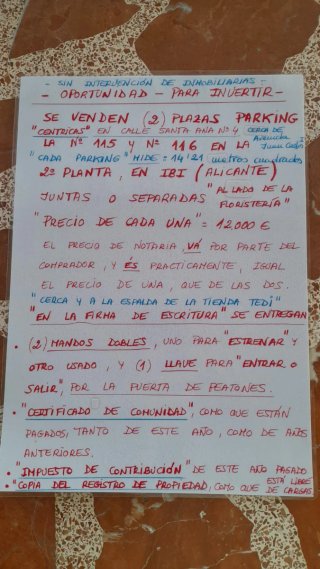 - SIN INTERVENCIÓN DE INMOBILIARIAS -
- OPORTUNIDAD - PARA INVERTIR -
SE VENDEN (2) PLAZAS PARKING
"CENTRICAS" EN CALLE SANTA ANA Nº 4 CERCA DE Avenida
LA Nº 115 Y Nº 116 EN LA Juan Carlos I
"CADA PARKING" MIDE = 14'21 metros cuadrados
2ª PLANTA, EN IBI (ALICANTE)
JUNTAS O SEPARADAS "AL LADO DE LA FLORISTERÍA"
"PRECIO DE CADA UNA" = 12,000 €
EL PRECIO DE NOTARIA, VÁ POR PARTE DEL
COMPRADOR, Y ÉS PRACTICAMENTE, IGUAL
EL PRECIO DE UNA, QUE DE LAS DOS.
"CERCA Y A LA ESPALDA DE LA TIENDA TEDI"
"EN LA FIRMA DE ESCRITURA" SE ENTREGAN
• (2) MANDOS DOBLES, UNO PARA "ESTRENAR" Y
OTRO USADO, Y (1) LLAVE PARA "ENTRAR O
SALIR", POR LA PUERTA DE PEATONES.
• "CERTIFICADO DE COMUNIDAD", COMO QUE ESTÁN
PAGADOS, TANTO DE ESTE AÑO, COMO DE AÑOS
ANTERIORES.
• "IMPUESTO DE CONTRIBUCIÓN" DE ESTE AÑO PAGADO
• "COPIA DEL REGISTRO DE PROPIEDAD, COMO QUE ESTÁ LIBRE DE CARGAS